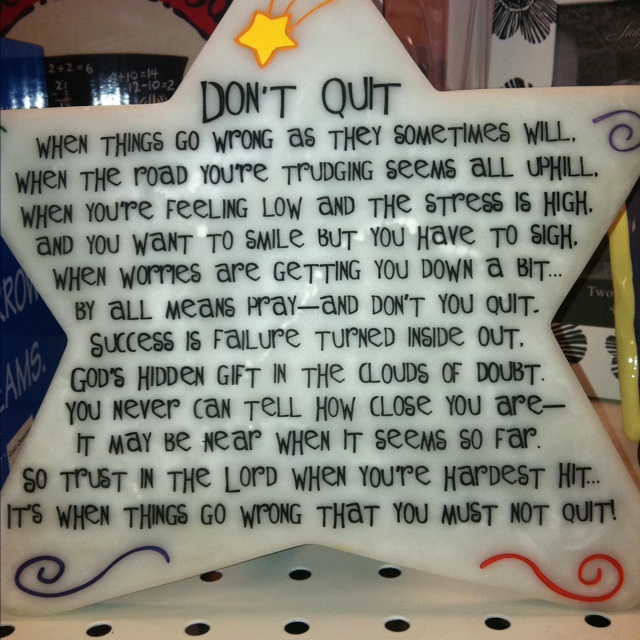 DON'T QUIT
WHEN THINGS GO WRONG AS THEY SOMETIMES WILL,
WHEN THE ROAD YOU'RE TRUDGING SEEMS ALL UPHILL,
WHEN YOU'RE FEELING LOW AND THE STRESS IS HIGH,
AND YOU WANT TO SMILE BUT YOU HAVE TO SIGH,
WHEN WORRIES ARE GETTING YOU DOWN A BIT...
BY ALL MEANS PRAY—AND DON'T YOU QUIT.
SUCCESS IS FAILURE TURNED INSIDE OUT,
GOD'S HIDDEN GIFT IN THE CLOUDS OF DOUBT.
YOU NEVER CAN TELL HOW CLOSE YOU ARE—
IT MAY BE NEAR WHEN IT SEEMS SO FAR.
SO TRUST IN THE LORD WHEN YOU'RE HARDEST HIT...
IT'S WHEN THINGS GO WRONG THAT YOU MUST NOT QUIT!
2+2=6
4+10=14
12-10=2
EAMS.
Two